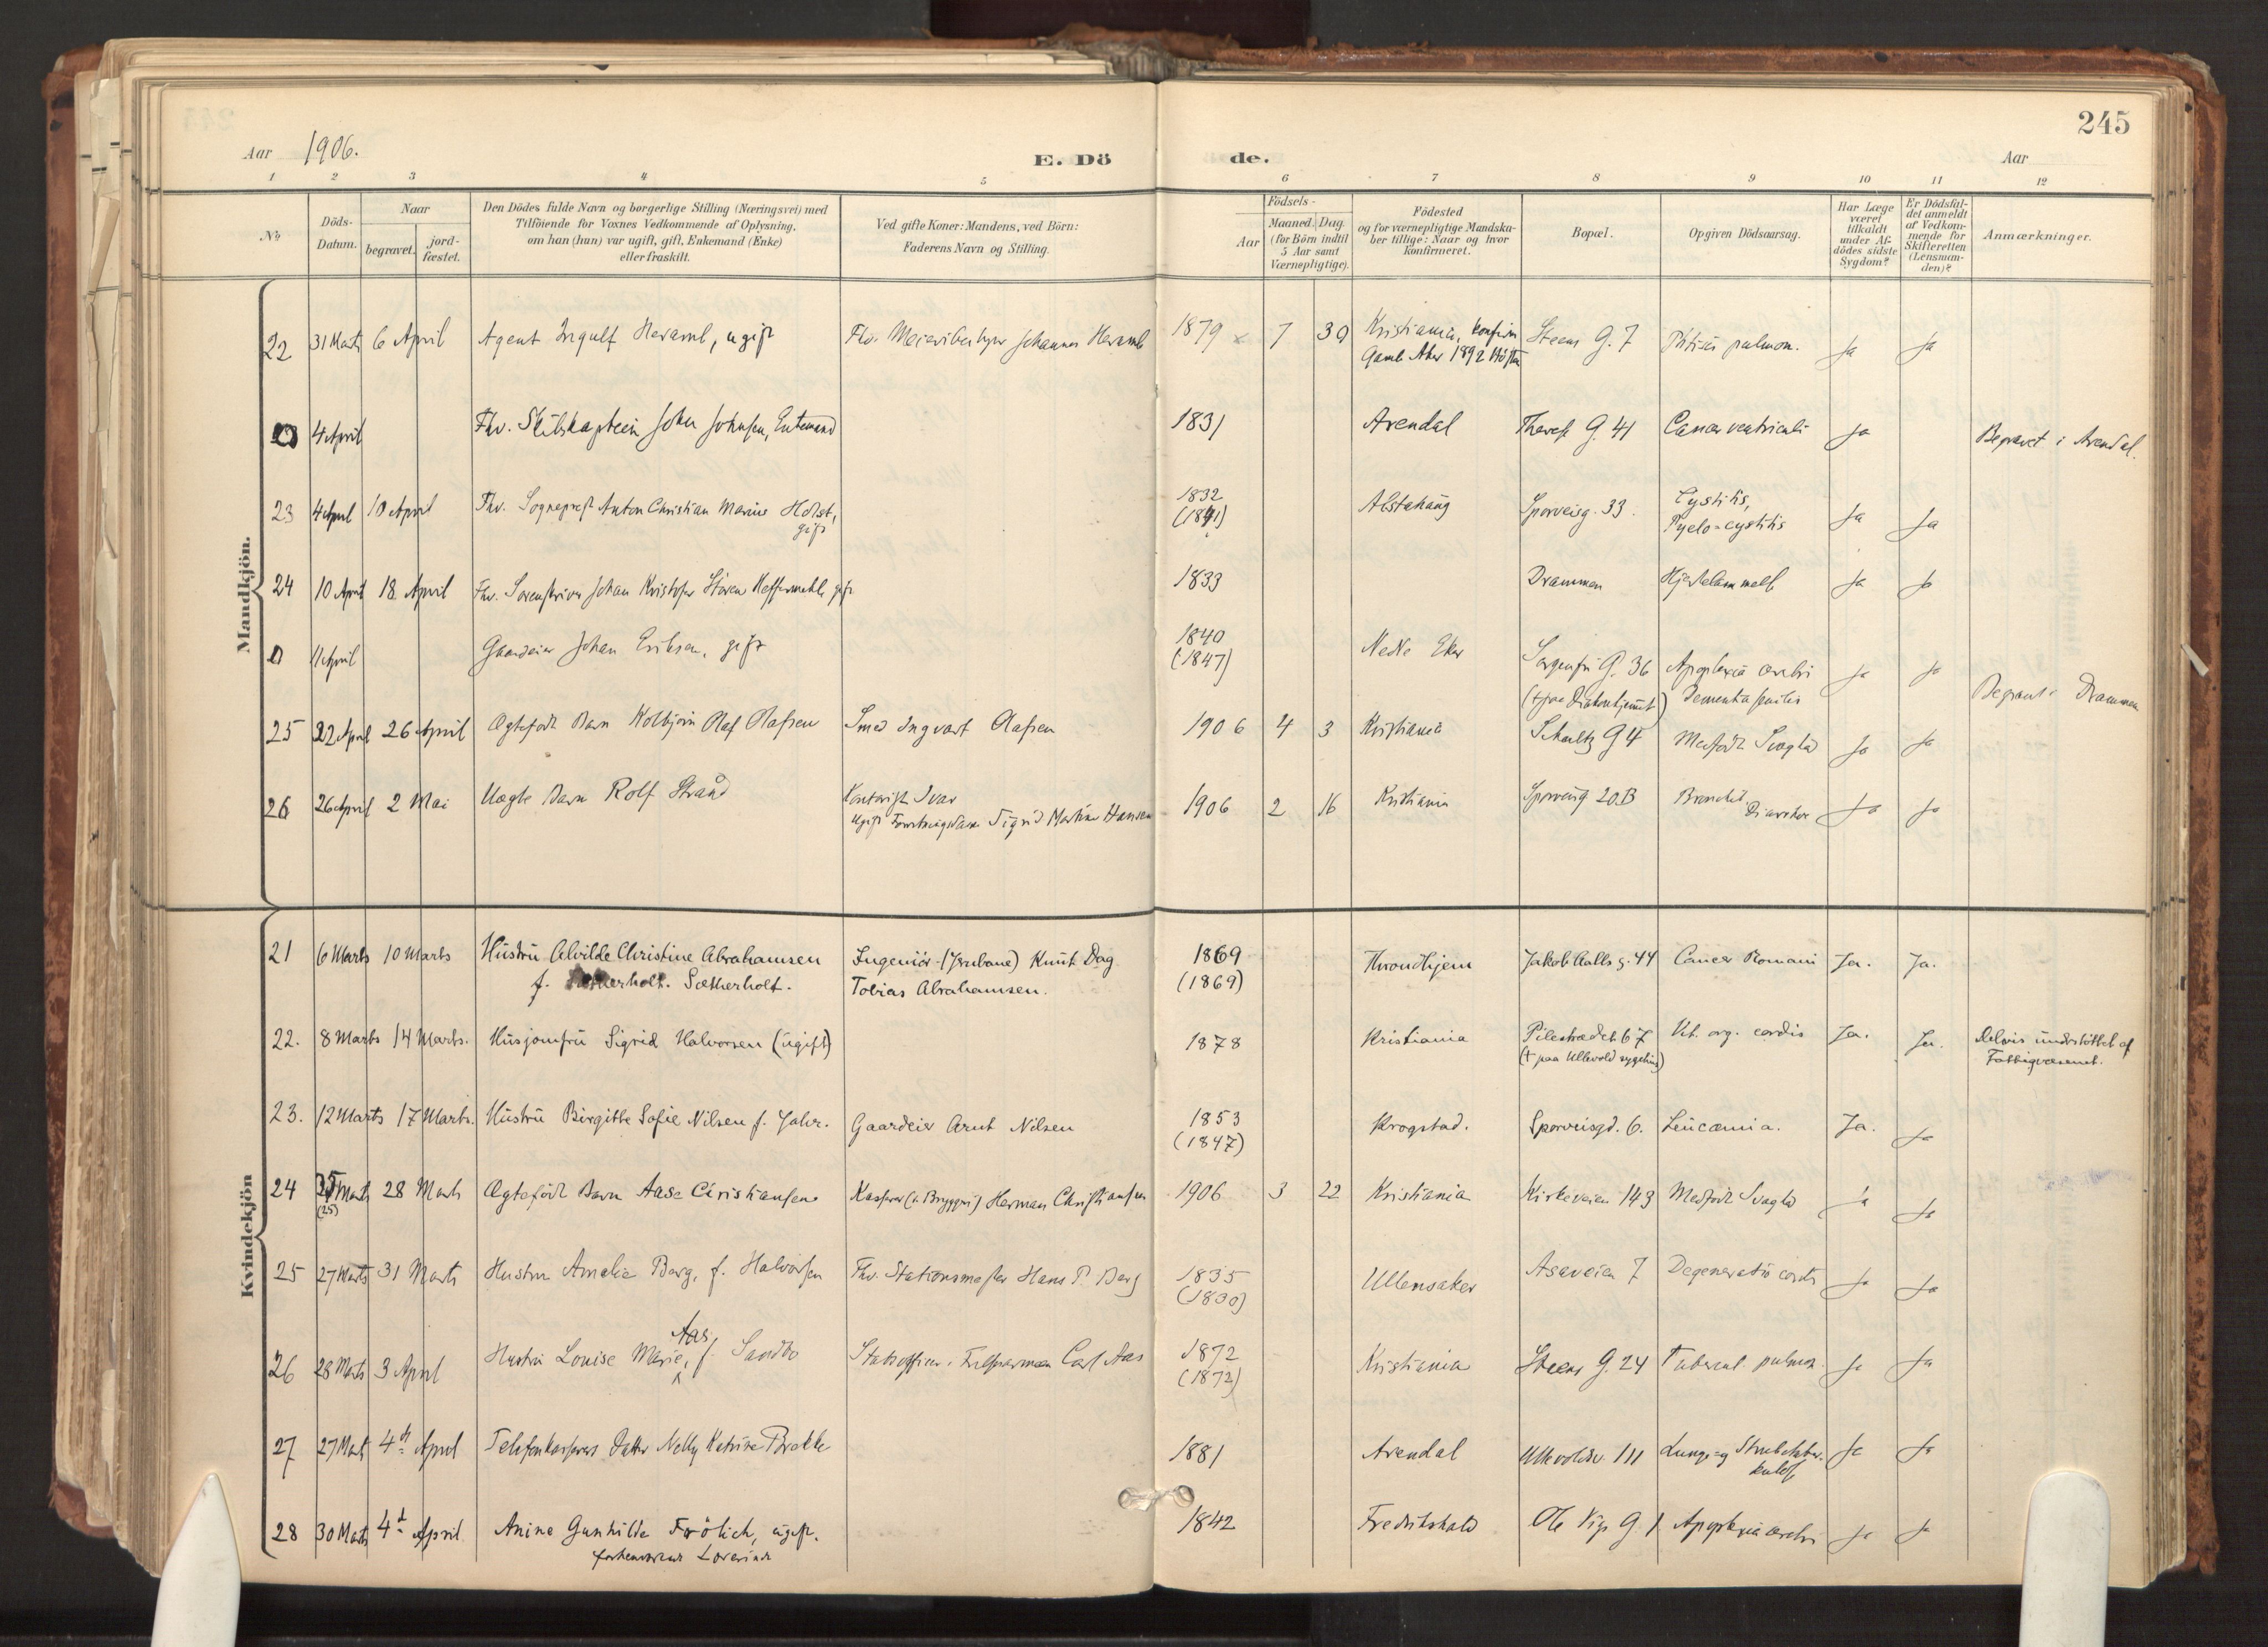 245
Aar 1906.
E. Dö de.
Aar
1 2 3 4 5 6 7 8 9 10 11 12
No
Döds-Datum.
Naar
begravet.
jord-fæstet.
Den Dödes fulde Navn og borgerlige Stilling (Næringsvei) med
Tilföiende for Voxnes Vedkommende af Oplysning,
om han (hun) var ugift, gift, Enkemand (Enke)
eller fraskilt.
Ved gifte Koner: Mandens, ved Börn:
Faderens Navn og Stilling.
Födsels-
Aar
Maaned. Dag.
(for Börn indtil
5 Aar samt
Værnepligtige).
Födested
og for værnepligtige Mandska-
ber tillige: Naar og hvor
konfirmeret.
Bopæl.
Opgiven Dödsaarsag.
Har Læge
været
tilkaldt
under Af-
dödes sidste
Sygdom?
Er Dödsfal-
det anmeldt
af Vedkom-
mende for
Skifteretten
(Lensman-
den)?
Anmærkninger.
Mandkjön.
22 31 Marts 6 April Agent Ingulf Heramb, ugift Fhv. Meieribestyrer Johannes Heramb 1879 7 30 Kristiania, konfirm Steens G. 7 Phtisis pulmon. Ja Ja
Gaml. Aker 1892 Hösten
0 4 April Fhv. Skibskaptein John Johnsen, Enkemand 1831 Arendal Therese G. 41 Cancer ventriculi Ja Begravet i Arendal.
23 4 April 10 April Fhv. Sogneprest Anton Christian Marius Holst, gift 1832 (1841) Alstahaug Sporveisg. 33. Cystitis, Pyelo-cystitis Ja Ja
24 10 April 18 April Fhv. Sorenskriver Johan Kristofer Stören Keffermehl, gift 1833 Drammen Hjertelammelse Ja Ja
0 11 April Gaardeier Johan Eriksen, gift 1840 (1847) Nedre Eker Sorgenfri G. 36 Apoplexia cerebri Ja Ja Begravet i Drammen
(† paa Diakonhjemmet) Dementia senilis
25 22 April 26 April Ægtefödt Barn Kolbjørn Olaf Olafsen Smed Ingvart Olafsen 1906 4 3 Kristiania Schultz G 4 Medfødt Svaghed Ja Ja
26 26 April 2 Mai Uægte Barn Rolf Strand Kontorist Ivar 1906 2 16 Kristiania Sporveisg 20.B Bronchit. Diarrhoe Ja Ja
ugift Forretningsdame Sigrid Martine Hansen
Kvindekjön
21 6 Marts 10 Marts Hustru Alvilde Christine Abrahamsen Ingeniör (Jernbane) Knut Dag 1869 Throndhjem Jakob Aalls g. 44 Cancer Romani Ja. Ja.
f. Sætherholt. Tobias Abrahamsen. (1869)
22. 8 Marts 14 Marts. Husjomfru Sigrid Halvorsen (ugift) 1878 Kristiania Pilestrædet 67 Vit. org. cordis Ja. Ja. Delvis understöttet af
(† paa Ullevold sygehus) Fattigvæsenet.
23. 12 Marts 17 Marts. Hustru Birgitte Sofie Nilsen f. Jahr. Gaardeier Arnt Nilsen 1853 (1847) Krogstad. Sporveisgd. 6. Leucæmia. Ja. Ja
24 25 Marts (25) 28 Marts Ægtefödt Barn Aase Christiansen Kasserer (v. Bryggeri) Herman Christiansen 1906 3 22 Kristiania Kirkeveien 143 Medfødt Svaghed Ja Ja
25 27 Marts 31 Marts Hustru Amalie Berg, f. Halvorsen Fhv. Stationsmester Hans P. Berg 1835 (1830) Ullensaker Asaveien 7 Degeneratio cordis Ja Ja
26 28 Marts 3 April Hustru Louise Marie Aas, f. Sandbo Carl Aas 1872 (1872) Kristiania Steens G. 24 Tubercul pulmon. Ja Ja
27 27 Marts 4de April Telefonkasserers Datter Nelly Katrine Brekke 1881 Arendal Ullevoldsv. 111 Lunge- og Strubetuberkulose Ja Ja
28 30 Marts 4de April. Anine Gunhilde Frölich, ugift. 1842 Fredrikshald Ole Vigs G. 1 Apoplexia cerebri Ja Ja
forhenværende Lærerinde